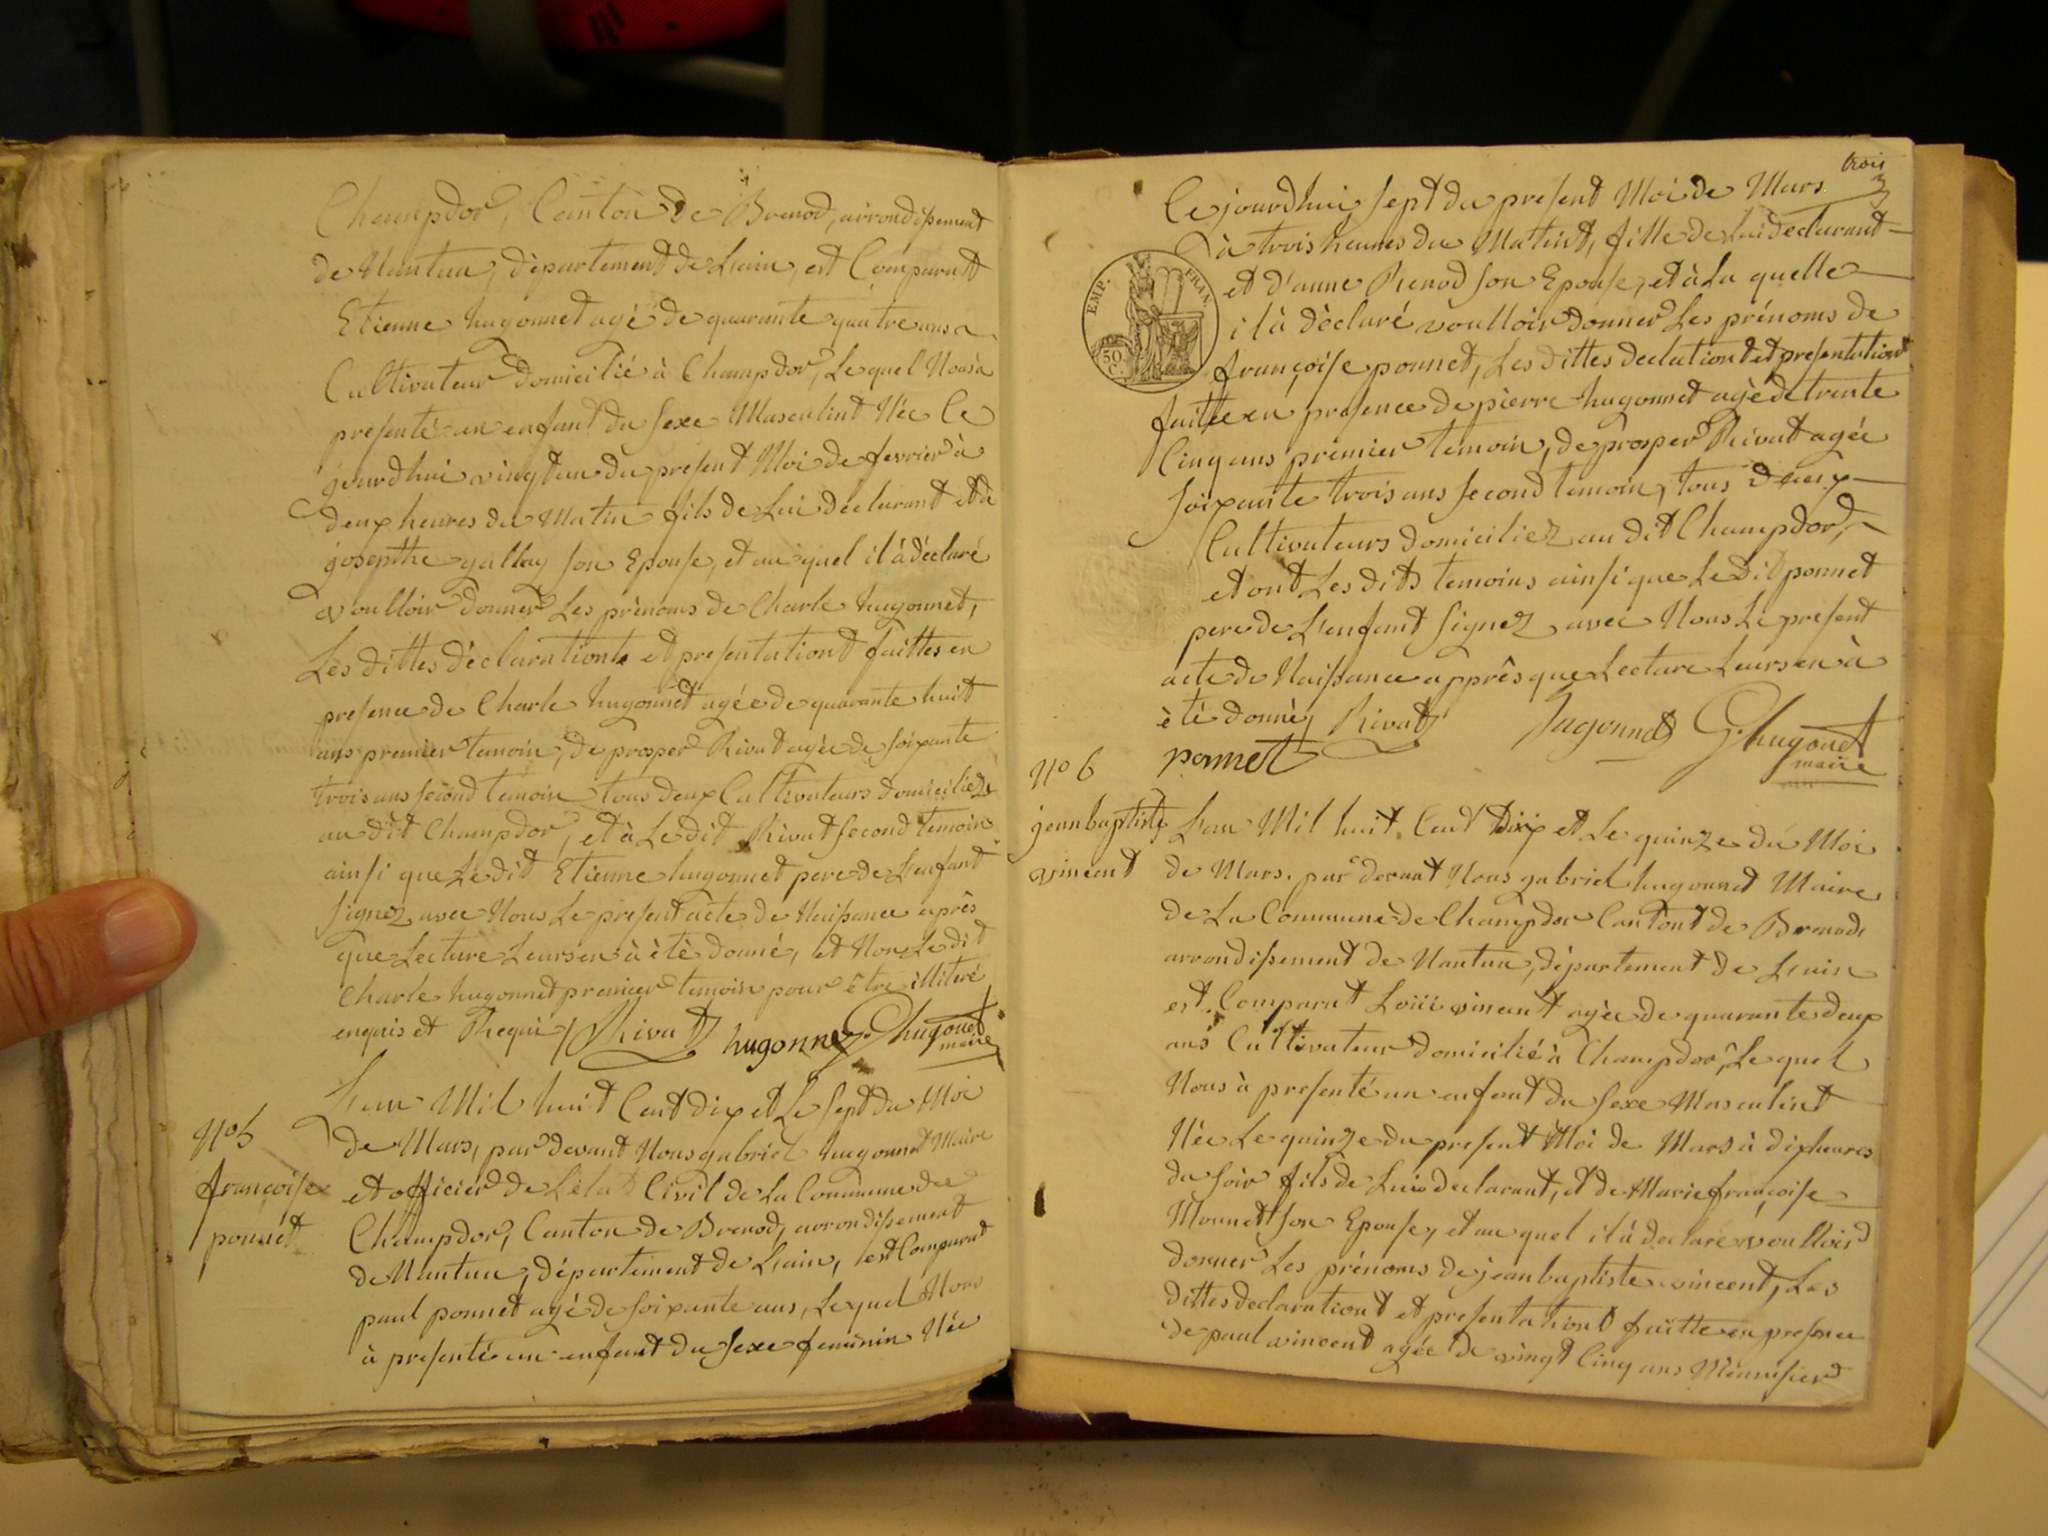 Champdor, Canton de Brenod, arrondissement
de Nantua, département de Lain, est Comparutt
Etienne hugonnet agé de quarante quatre ans
Cultivateur domicilié à Champdor, Lequel Nous à
presenté un enfant du sexe Masculint Née Ce
jourdhui vingt un du present Moi de fevrier à
deux heures du Matin fils de Lui declarant et à
josepthe gallay son Epouse, et au quel il à déclaré
voulloir donner Les prénoms de Charle hugonnet,
Les dittes déclarationt et presentationt faittes en
presence de Charle hugonnet agée de quarante huit
ans premier temoin, de prosper Rivat agée de soixante
trois ans second temoin tous deux Cultivateurs domiciliez
au dit Champdor, et à Le dit Rivat second temoin
ainsi que Le dit Etienne hugonnet pere de Lenfant
signez avec Nous Le present acte de Naissance après
que Lecture Leursen à èté donné, et Non Le dit
Charle hugonnet premier temoin pour être illiteré
enquis et Requi / Rivat hugonnet G. hugonet
maire
N° 5
françoise
ponnet
Lan Mil huit Cent dix et Le sept du Moi
de Mars, par devant Nous gabriel hugonnet Maire
et officier de Létat Civil de La Commune de
Champdor, Canton de Brenod, arrondissement
de Nantua, département de Lain, est Comparut
paul ponnet agé de soixante ans, Lequel Nous
à presenté un enfant du sexe feminin Née
trois
3
Ce jourdhui sept du present Moi de Mars
à trois heures du Matint, fille de Lui declarant
et d'anne Renod son Epouse, et à La quelle
il à dèclaré voulloir donner Les prénoms de
EMP. FRAN.
50
C.
françoise ponnet, Les dittes declationt et presentationt
faitte en presence de pierre hugonnet agè de trente
Cinq ans premier temoin, de prosper Rivat agée
soixante trois ans second temoin, tous deux
Cultivateurs domiciliez au dit Champdor,
et ont Les dits temoins ainsi que Le dit ponnet
pere de Lenfant signez avec Nous Le present
acte de Naissance apprês que Lecture Leursen à
èté donnè, Rivat hugonnet G. hugonet
maire
ponnet
N° 6
jeanbaptiste
vincent
Lan Mil huit Cent Dix et Le quinze du Moi
de Mars. par devant Nous gabriel hugonnet Maire
de La Commune de Champdor Cantont de Brenod
arrondissement de Nantua, département de Lain
est Comparut Loüi vincent agée de quarante deux
ans Cultivateur domicilié à Champdor, Lequel
Nous à presenté un enfant du sexe Masculint
Née Le quinze du present Moi de Mars à dixheures
du soir fils de Lui declarant, et de Marie françoise
Monnet son Epouse, et au quel il à declaré voulloir
donner Les prénoms de jeanbaptiste vincent, Les
dittes declarationt et presentationt faitte en presence
de paul vincent agée de vingt Cinq ans Menuisier